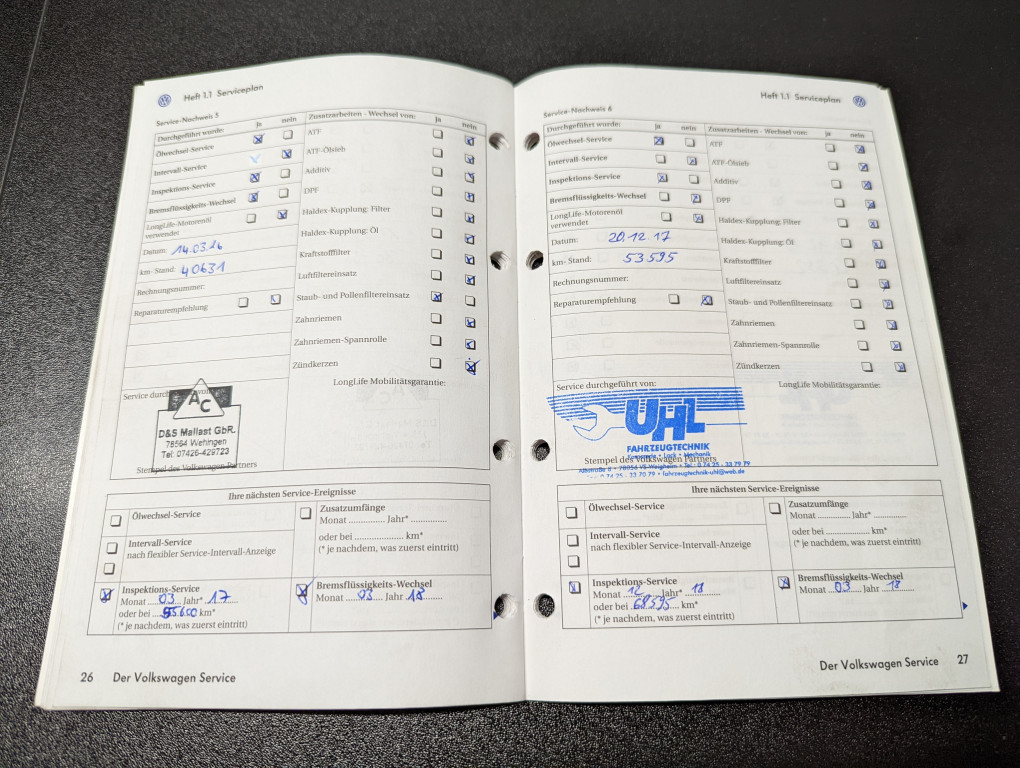 Heft 1.1 Serviceplan
Service-Nachweis 5
Durchgeführt wurde: ja nein
Ölwechsel-Service
Intervall-Service
Inspektions-Service
Bremsflüssigkeits-Wechsel
LongLife-Motorenöl
verwendet
Datum: 14.03.16
km- Stand: 40631
Rechnungsnummer:
Reparaturempfehlung
Zusatzarbeiten - Wechsel von: ja nein
ATF
ATF-Ölsieb
Additiv
DPF
Haldex-Kupplung: Filter
Haldex-Kupplung: Öl
Kraftstofffilter
Luftfiltereinsatz
Staub- und Pollenfiltereinsatz
Zahnriemen
Zahnriemen-Spannrolle
Zündkerzen
LongLife Mobilitätsgarantie:
AC
D&S Mallast GbR.
78564 Wehingen
Tel: 07426-429723
Stempel des Volkswagen Partners
Ihre nächsten Service-Ereignisse
Ölwechsel-Service
Intervall-Service
nach flexibler Service-Intervall-Anzeige
Inspektions-Service
Monat ...03... Jahr* ..17........
oder bei ............ km*
(* je nachdem, was zuerst eintritt)
Zusatzumfänge
Monat ............. Jahr* .............
oder bei .................. km*
(* je nachdem, was zuerst eintritt)
Bremsflüssigkeits-Wechsel
Monat .....03..... Jahr .18........
26 Der Volkswagen Service
Heft 1.1 Serviceplan
Service-Nachweis 6
Durchgeführt wurde: ja nein
Ölwechsel-Service
Intervall-Service
Inspektions-Service
Bremsflüssigkeits-Wechsel
LongLife-Motorenöl
verwendet
Datum: 20.12.17
km- Stand: 53595
Rechnungsnummer:
Reparaturempfehlung
Zusatzarbeiten - Wechsel von: ja nein
ATF
ATF-Ölsieb
Additiv
DPF
Haldex-Kupplung: Filter
Haldex-Kupplung: Öl
Kraftstofffilter
Luftfiltereinsatz
Staub- und Pollenfiltereinsatz
Zahnriemen
Zahnriemen-Spannrolle
Zündkerzen
Service durchgeführt von:
LongLife Mobilitätsgarantie:
ÜHL
FAHRZEUGTECHNIK
Lack • Mechanik
Stempel des Volkswagen Partners
8 • 78056 VS-Weigheim • Tel.: 0 74 25 - 33 79 79
0 74 25 - 33 70 79 • fahrzeugtechnik-uhl@web.de
Ihre nächsten Service-Ereignisse
Ölwechsel-Service
Intervall-Service
nach flexibler Service-Intervall-Anzeige
Inspektions-Service
Monat ...12... Jahr* ..18........
oder bei ..68595.. km*
(* je nachdem, was zuerst eintritt)
Zusatzumfänge
Monat ............. Jahr* .............
oder bei .................. km*
(* je nachdem, was zuerst eintritt)
Bremsflüssigkeits-Wechsel
Monat ...03..... Jahr ..18......
Der Volkswagen Service 27